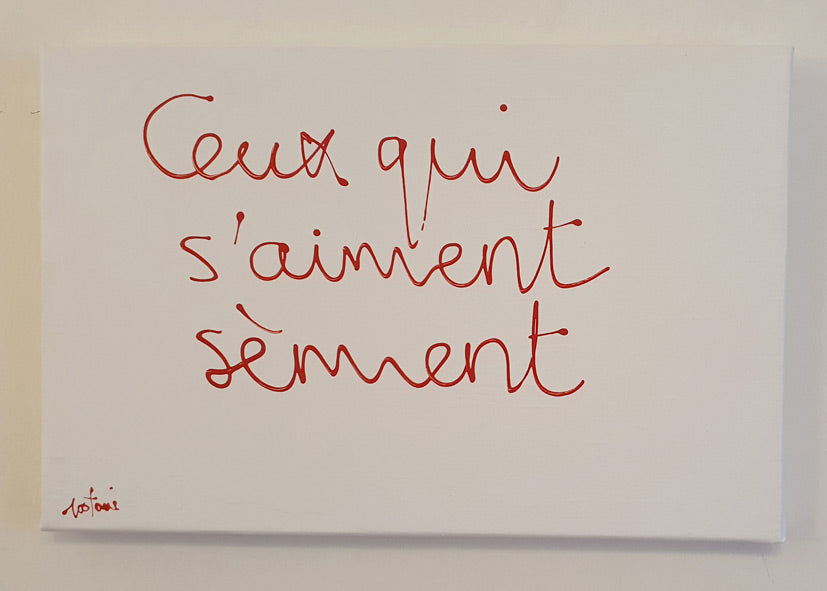 Ceux qui
s'aiment
sèment